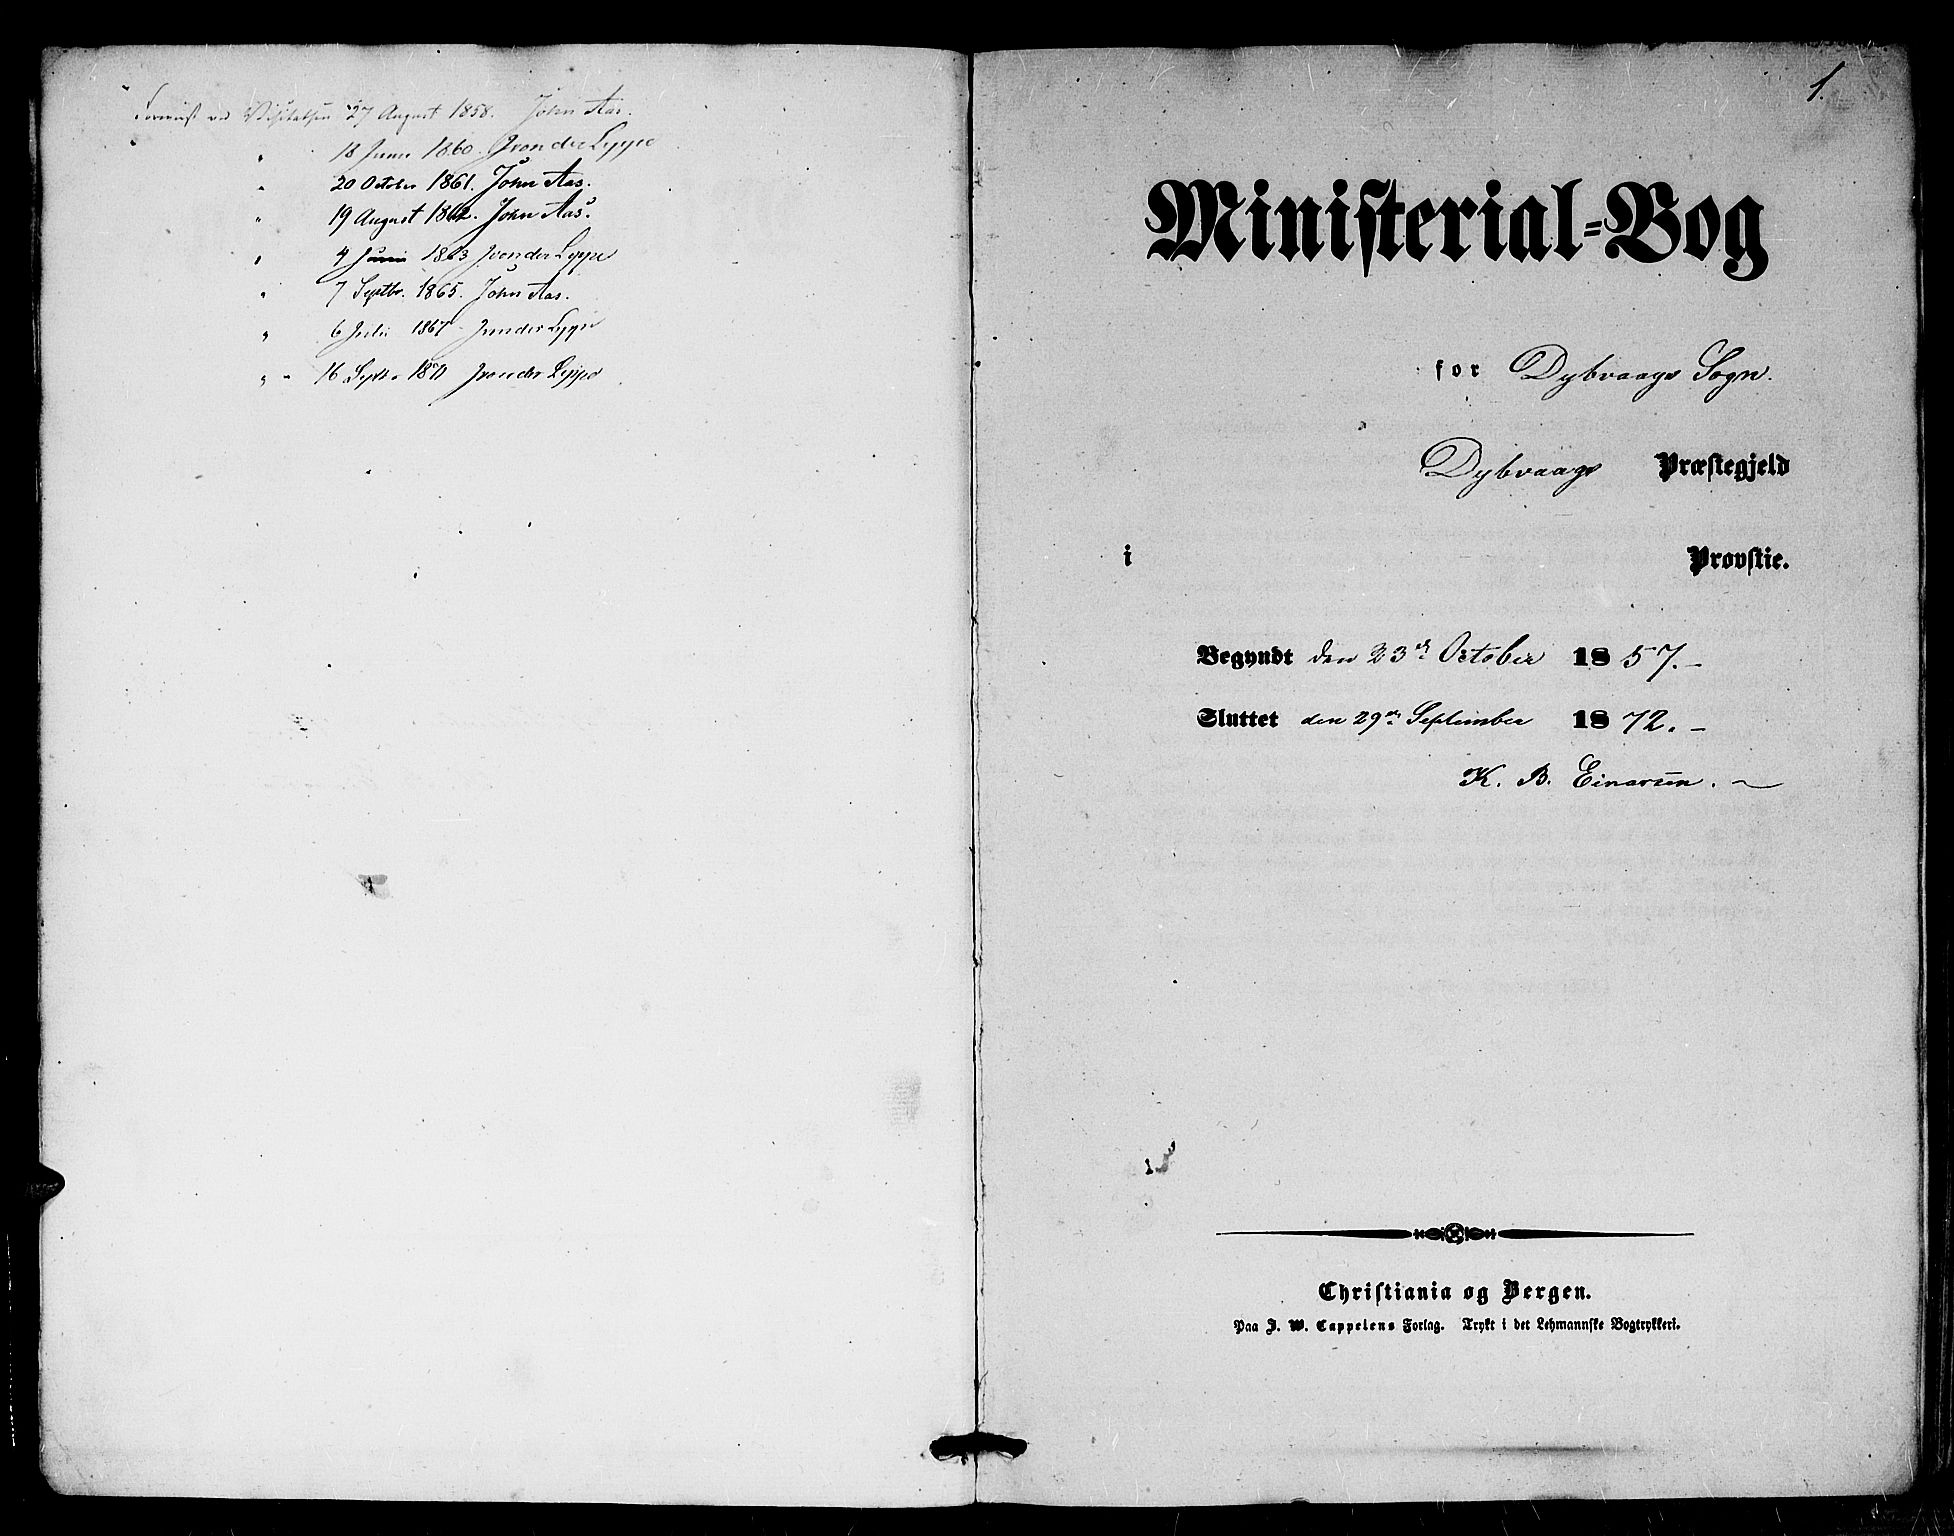 Foreviist ved Visitatsen 27 August 1858. John Aas.
" 18 Juni 1860. J von der Lippe
" 20 October 1861. John Aas.
" 19 August 1862. John Aas.
" 4 Juni 1863 J von der Lippe
" 7 Septbr. 1865. John Aas.
" 6 Juli 1867 J von der Lippe
" 16 Septr. 1871 J von der Lippe
1.
Ministerial-Bog
for Dybvaags Sogn.
Dybvaags Præstegjeld
i Provstie.
Begyndt den 23de October 1857.-
Sluttet den 29de September 1872.-
K. B. Einarsen.
Christiania og Bergen.
Paa J. W. Cappelens Forlag. Trykt i det Lehmannske Bogtrykkeri.